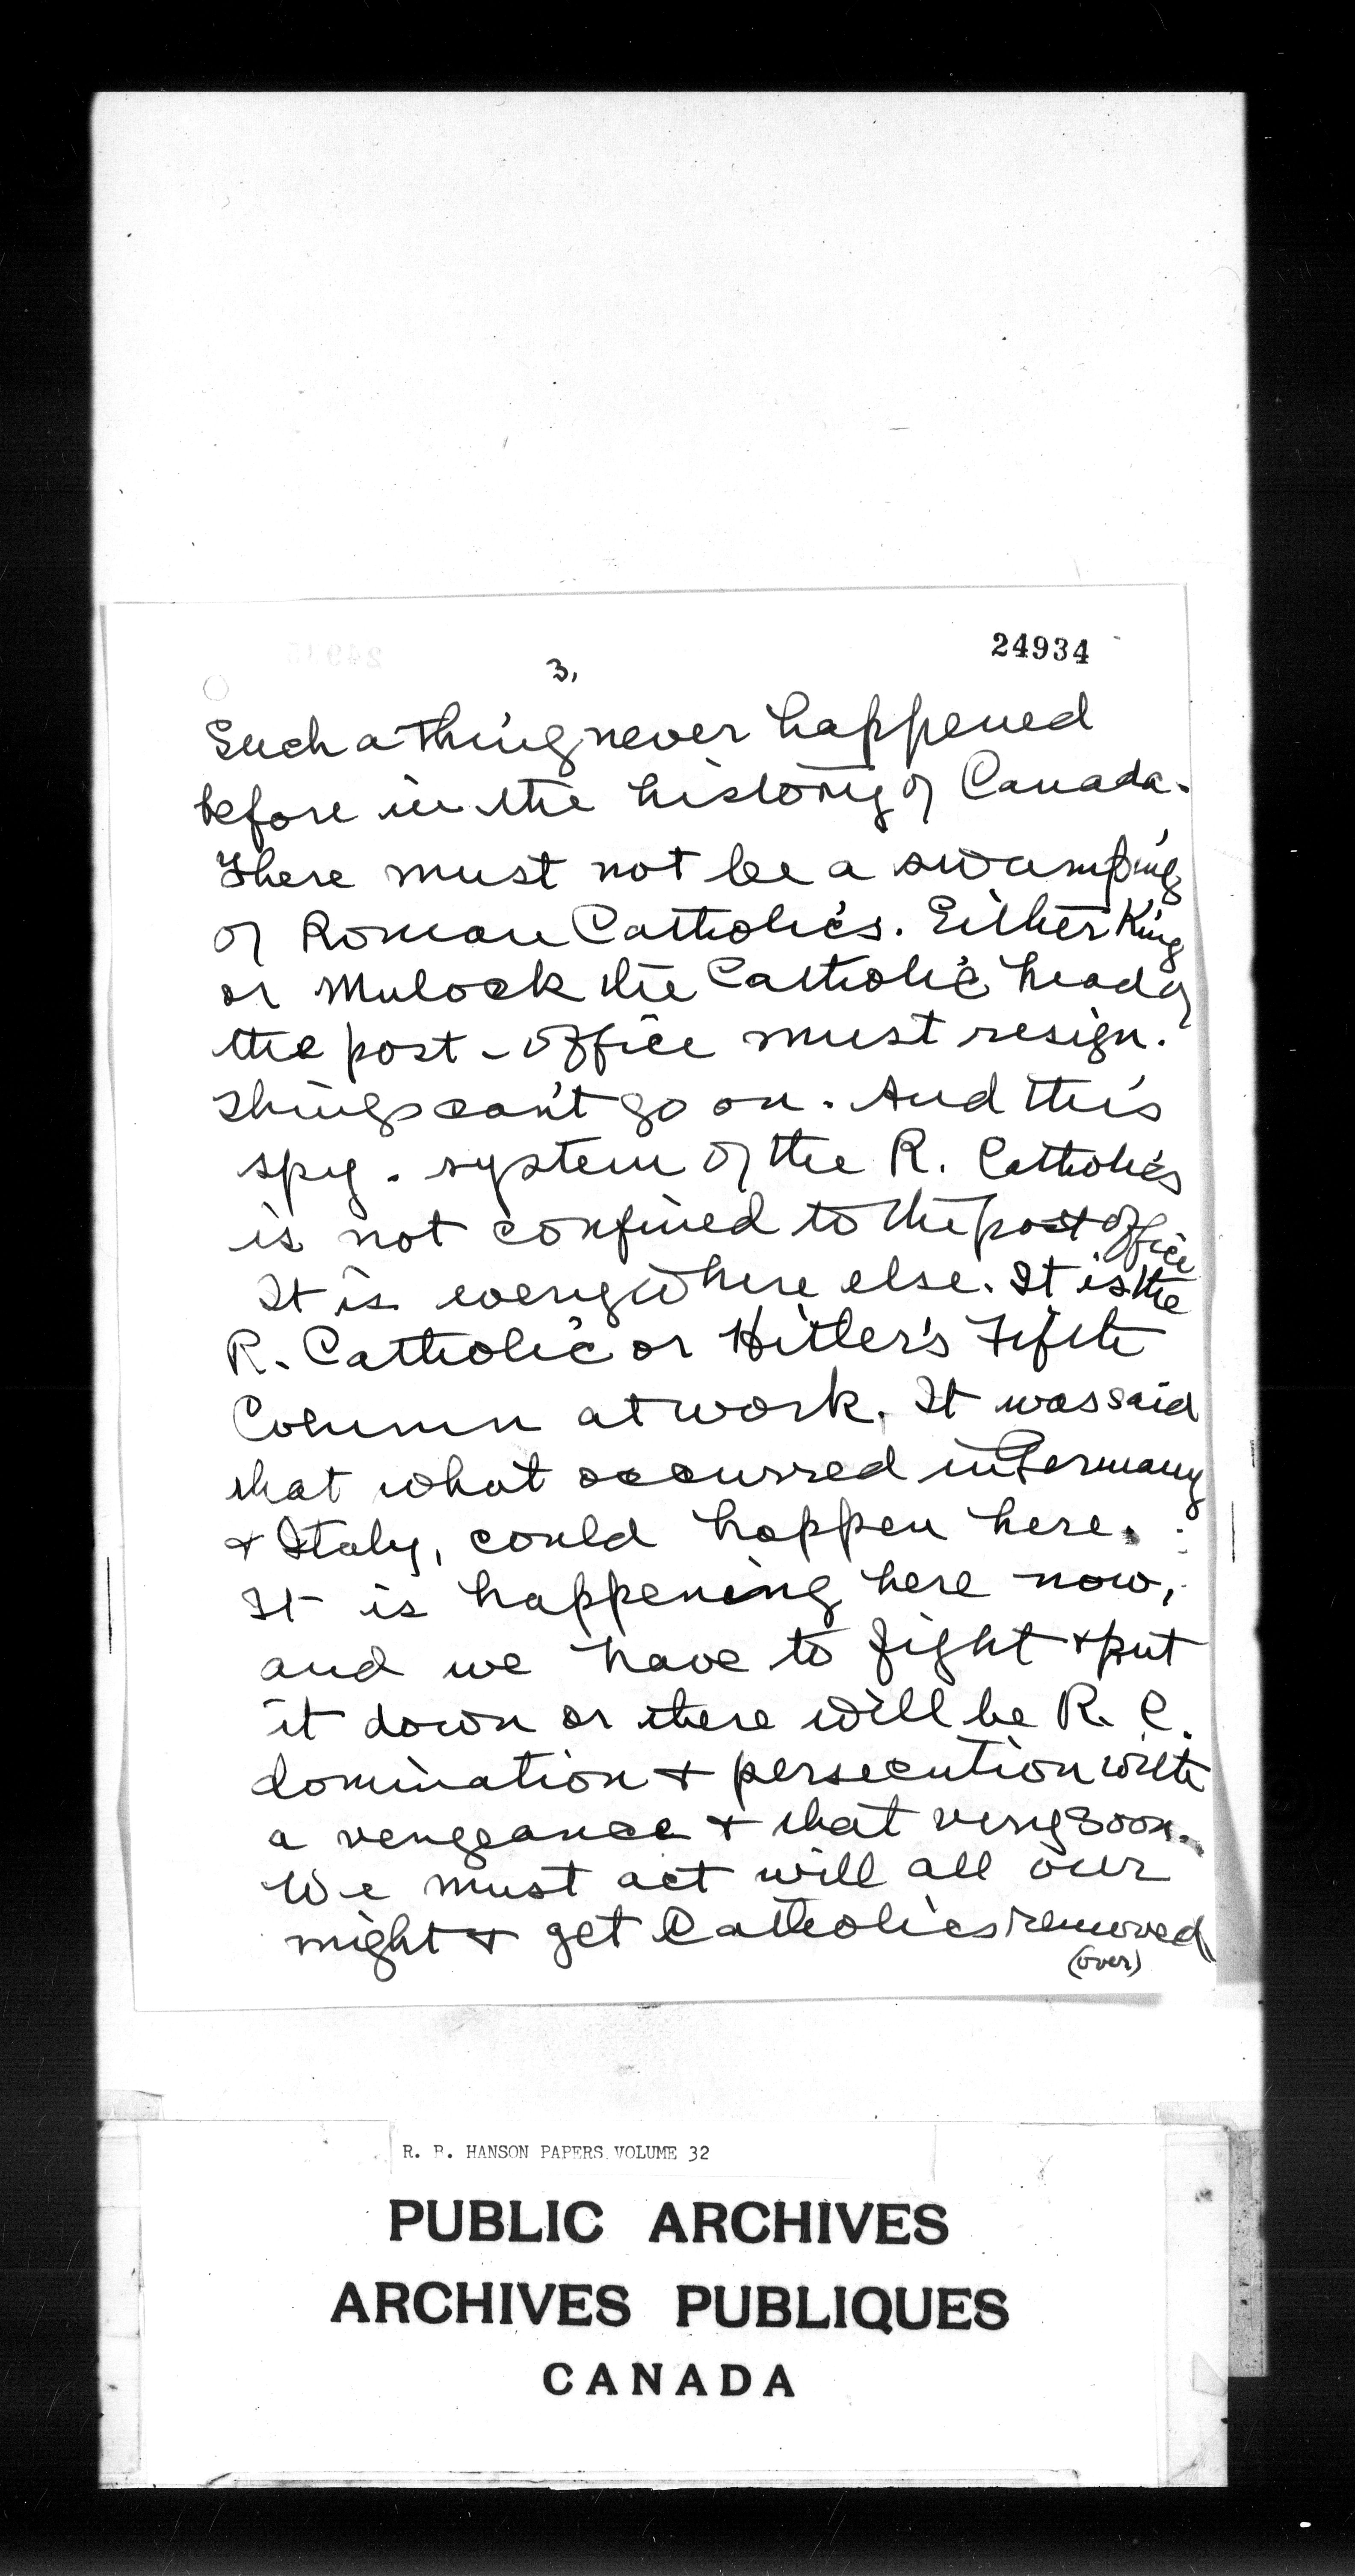 24934
3,
Such a thing never happened
before in the history of Canada.
There must not be a swamping
of Roman Catholics. Either King
or Mulock the Catholic head of
the post-office must resign.
Things can't go on. And this
spy-system of the R. Catholics
is not confined to the post office
It is everywhere else. It is the
R. Catholic or Hitler's Fifth
Column at work. It was said
that what occurred in Germany
& Italy, could happen here.
It is happening here now,
and we have to fight & put
it down or there will be R. C.
domination & persecution with
a vengeance & that very soon.
We must act will all our
might & get Catholics removed
(over)
R. B. HANSON PAPERS VOLUME 32
PUBLIC ARCHIVES
ARCHIVES PUBLIQUES
CANADA